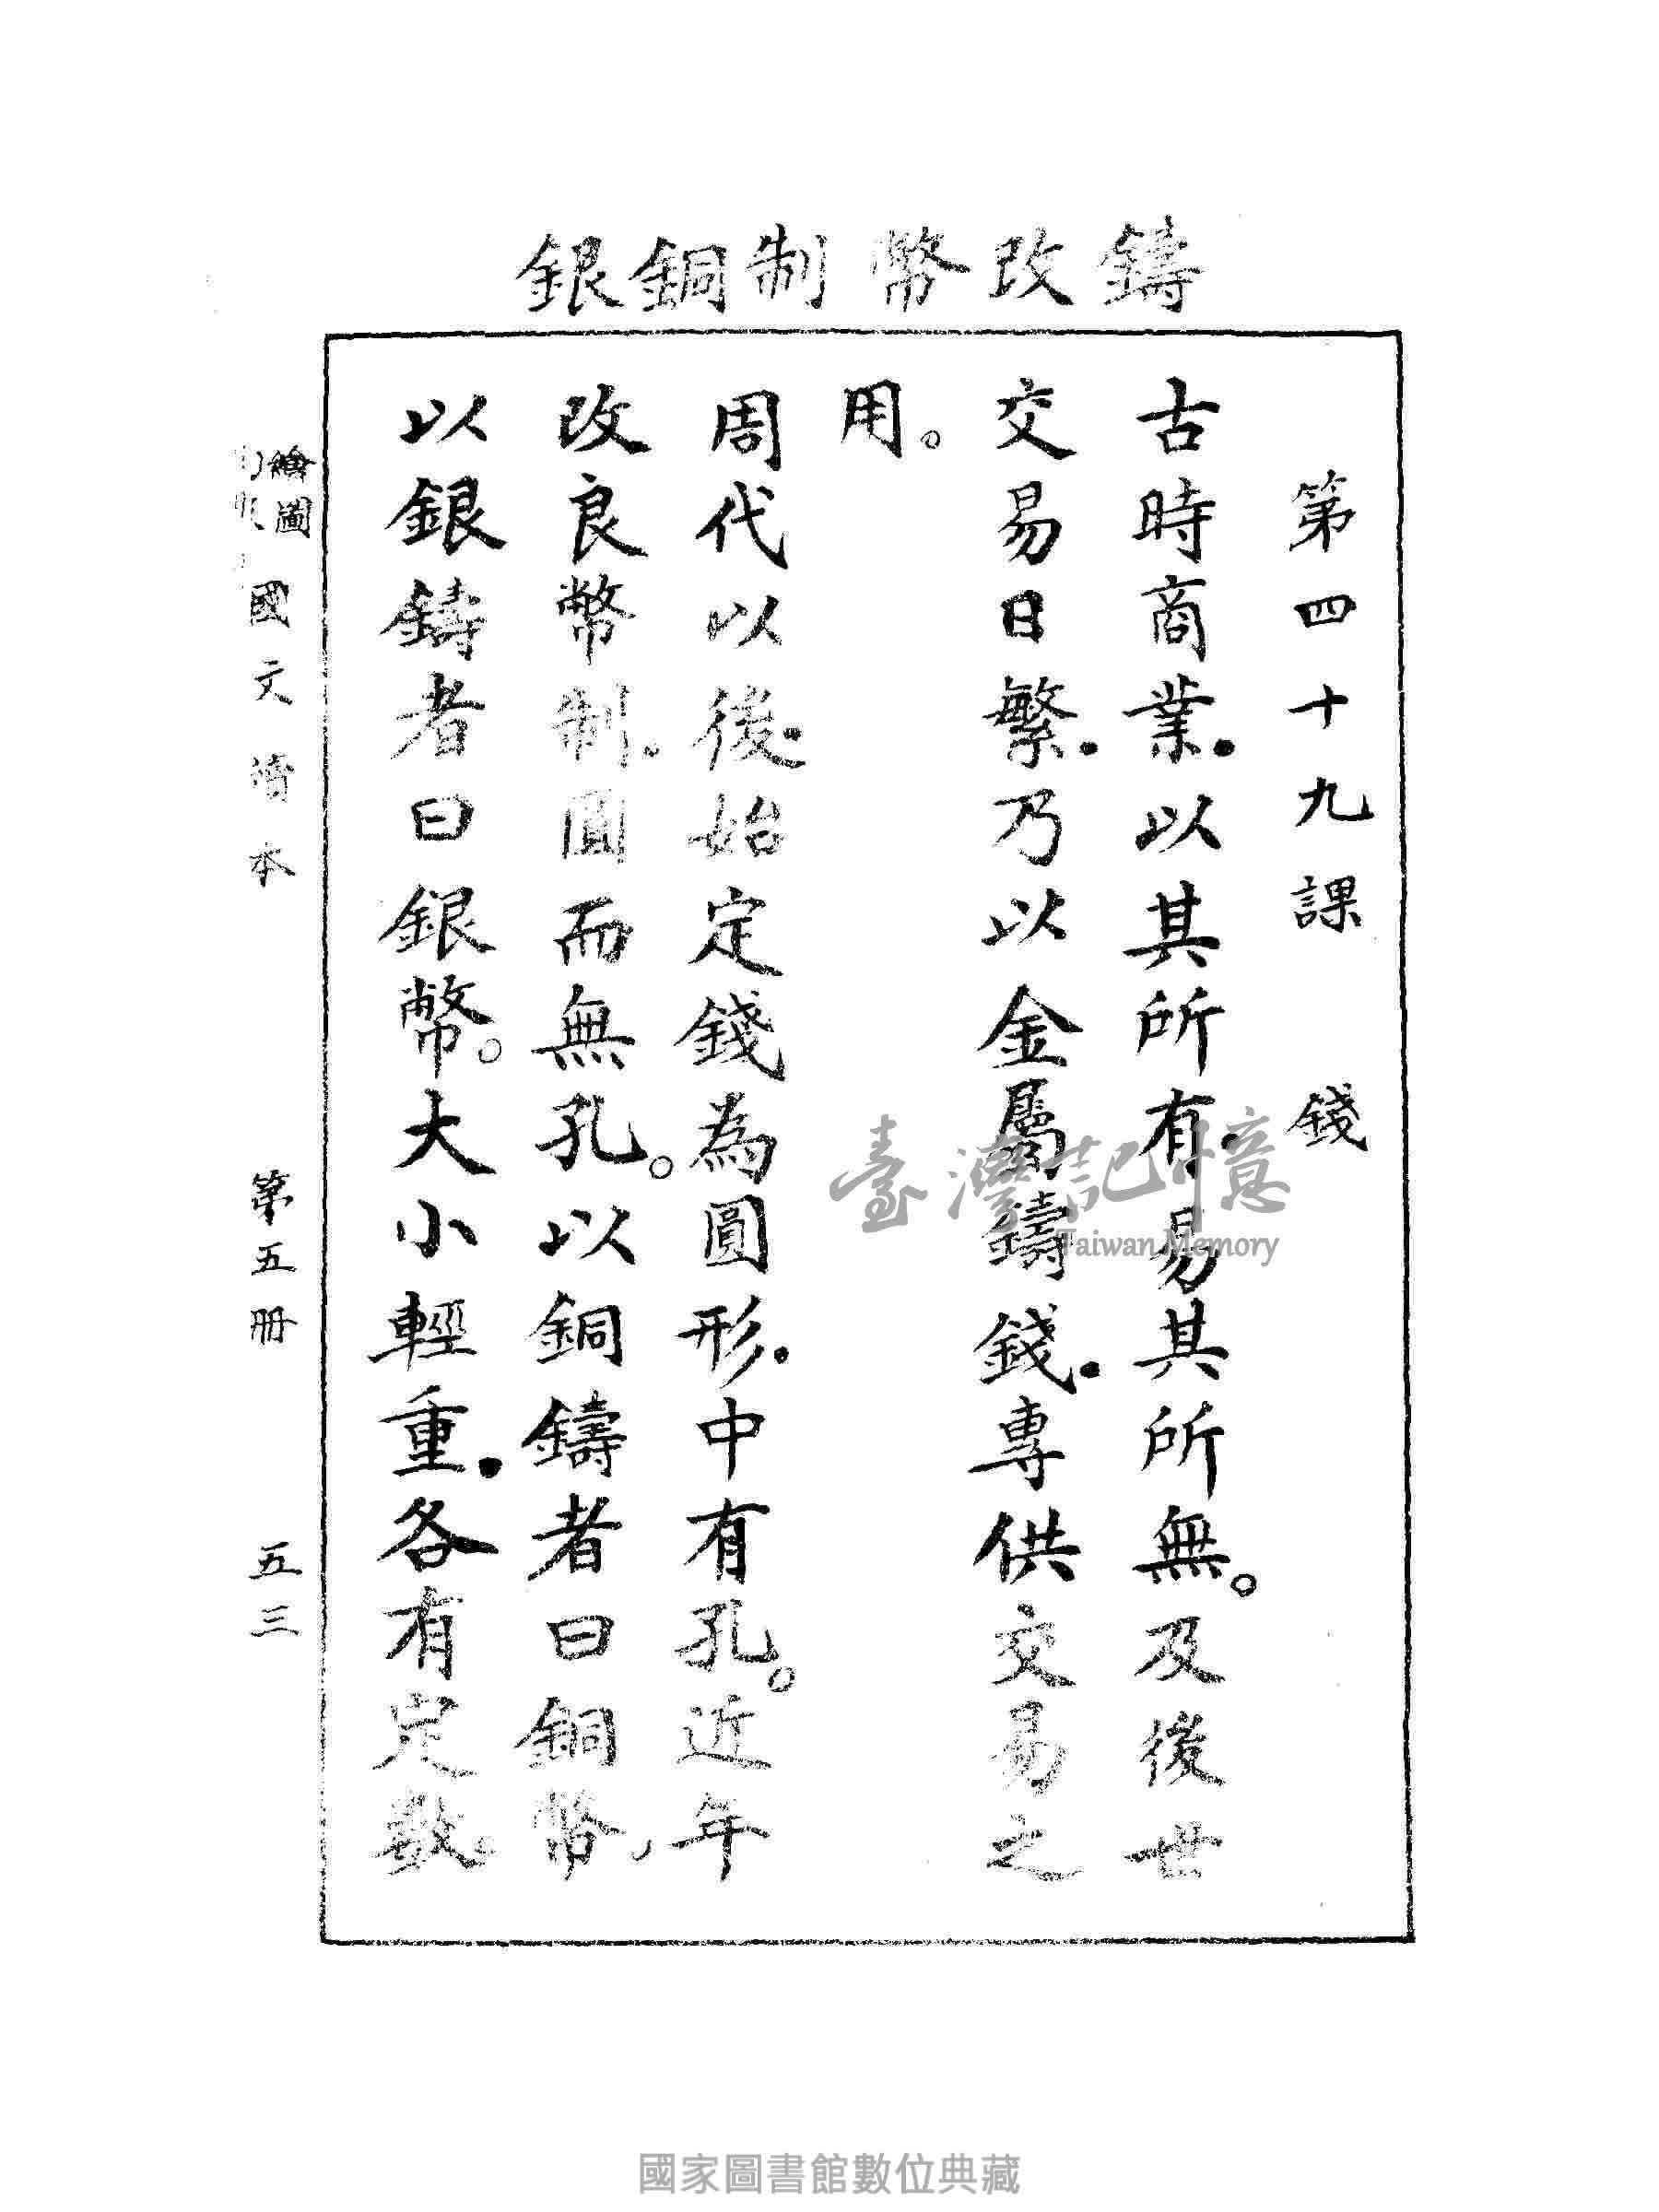 鑄改幣制銅銀
第四十九課　錢
古時商業．以其所有．易其所無。及後世
交易日繁．乃以金屬鑄錢．專供交易之
用。
周代以後．始定錢為圓形．中有孔。近年
改良幣制。圓而無孔。以銅鑄者曰銅幣、
以銀鑄者曰銀幣。大小輕重．各有定數。
繪圖
國文讀本　第五冊　五三
臺灣記憶
Taiwan Memory
國家圖書館數位典藏